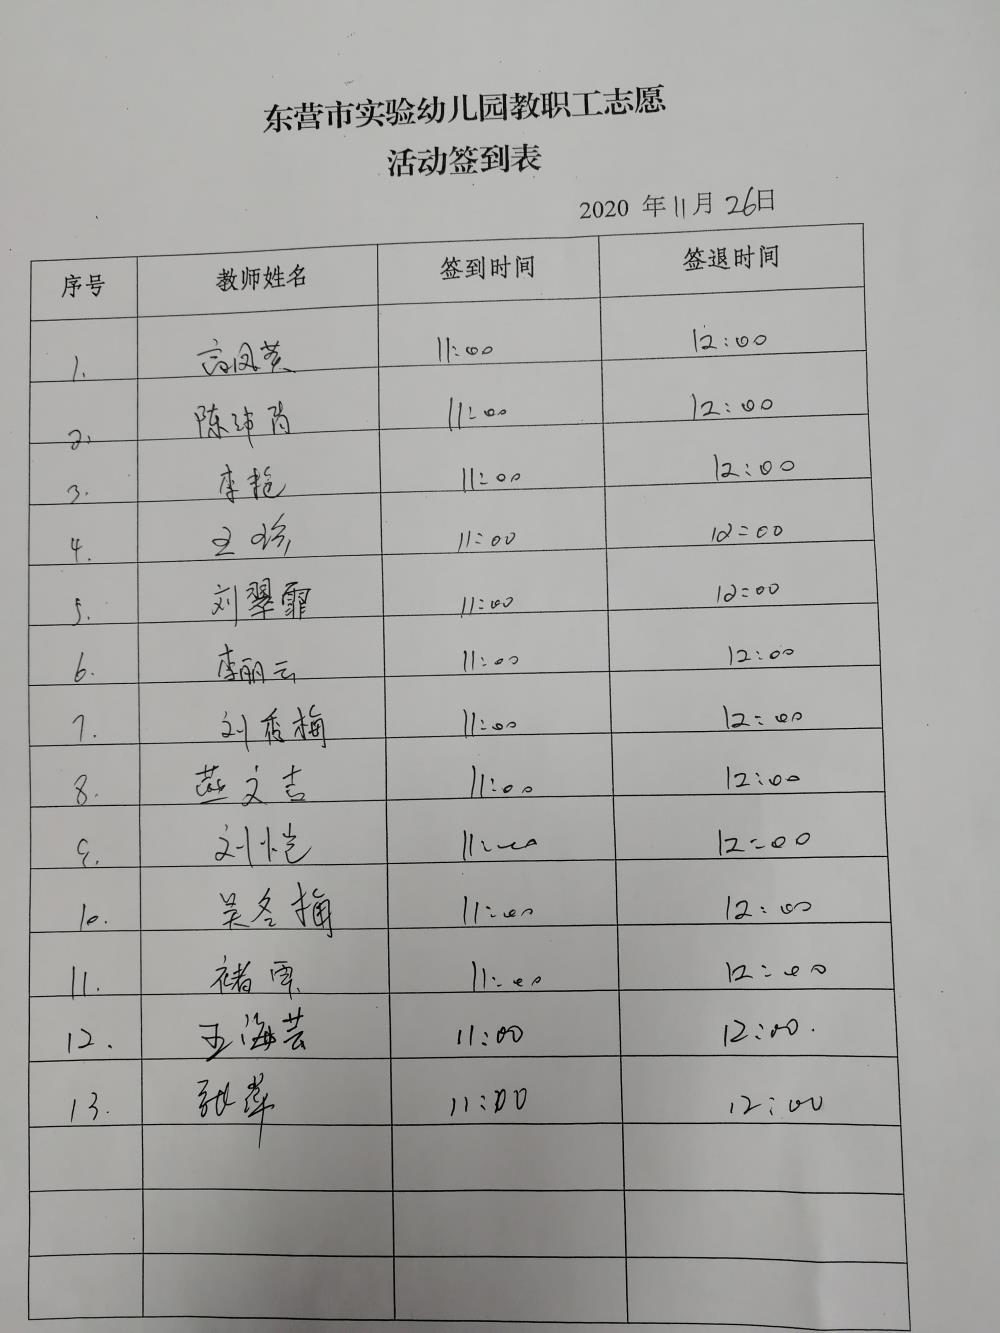 东营市实验幼儿园教职工志愿
活动签到表
2020 年 11 月 26日
序号 教师姓名 签到时间 签退时间
1. 高凤英 11:00 12:00
2. 陈 11:00 12:00
3. 李艳 11:00 12:00
4. 王 11:00 12:00
5. 刘翠霏 11:00 12:00
6. 李丽云 11:00 12:00
7. 刘秀梅 11:00 12:00
8. 燕文吉 11:00 12:00
9. 刘恺 11:00 12:00
10. 吴冬梅 11:00 12:00
11. 褚雯 11:00 12:00
12. 王海芸 11:00 12:00.
13. 张 11:00 12:00